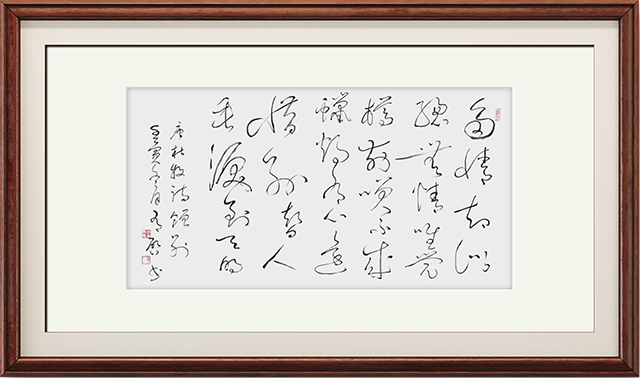 多情却似
總無情唯覺
樽前笑不成
蠟燭有心還
惜別替人
垂淚到天明
唐杜牧詩贈別
壬寅冬月
書